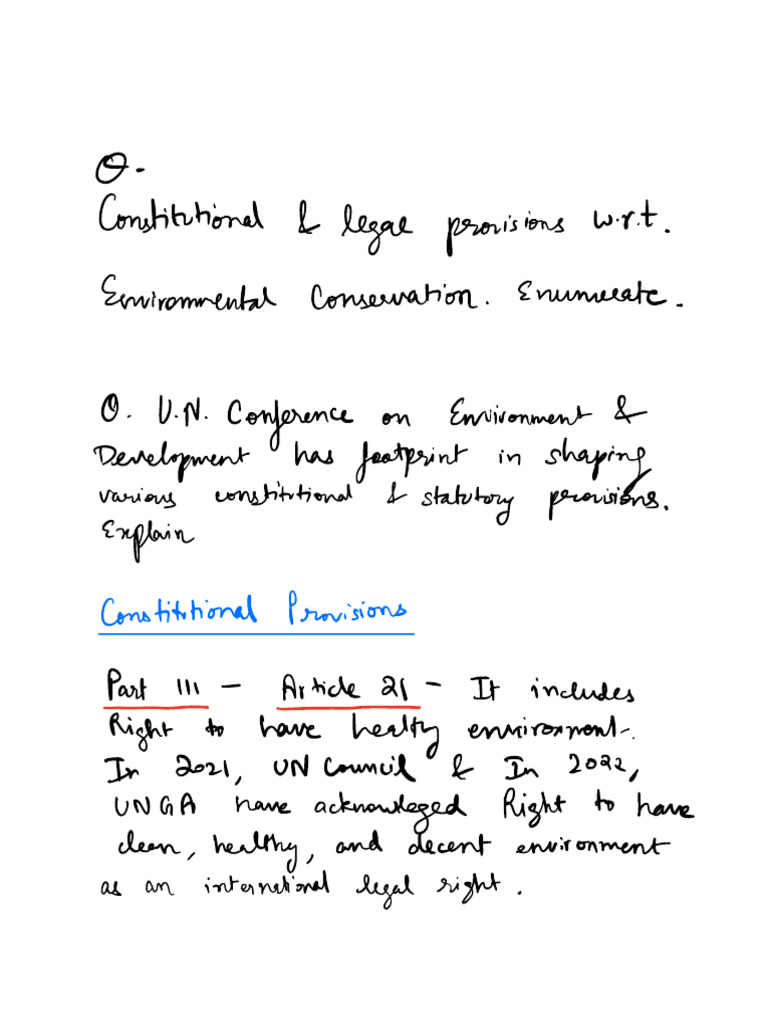 Q-
Constitutional & legal provisions w.r.t.
Environmental Conservation. Enumerate.
Q. U.N. Conference on Environment &
Development has footprint in shaping
various constitutional & statutory provisions.
Explain
Constitutional Provisions
Part III - Article 21 - It includes
Right to have healty environment.
In 2021, UN Council & In 2022,
UNGA have acknowleged Right to have
clean, healthy, and decent environment
as an international legal right.